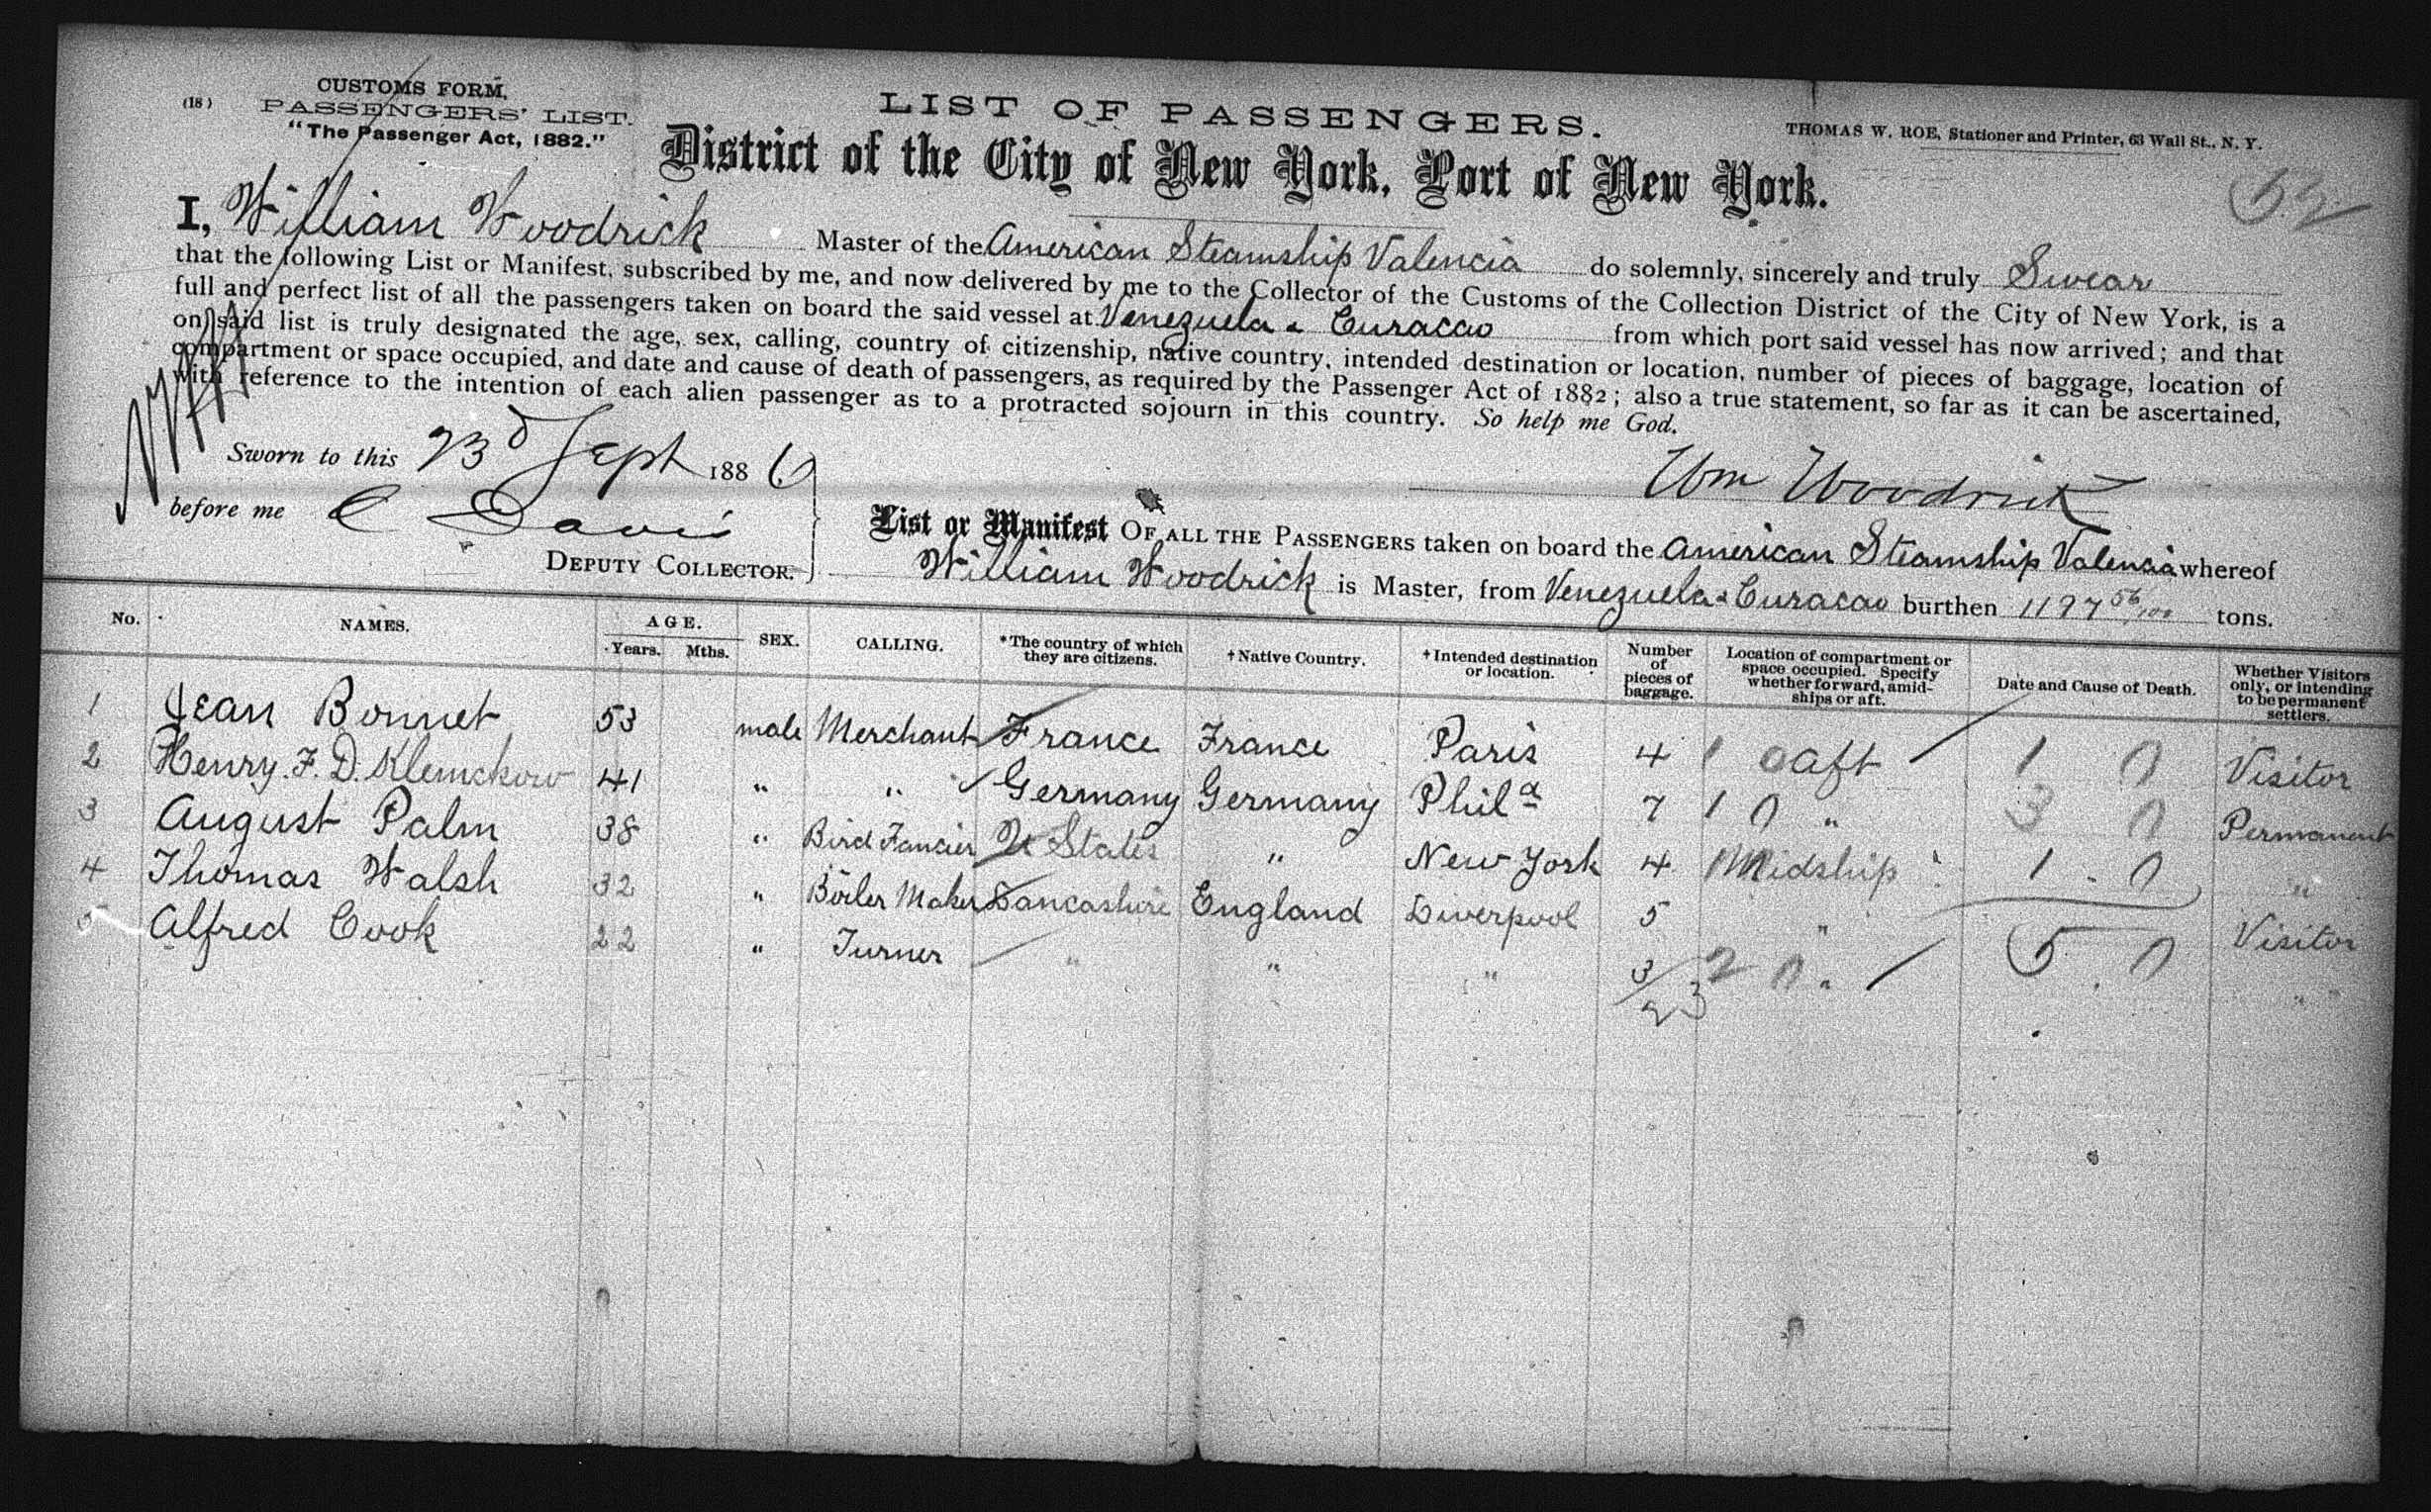 (18)
CUSTOMS FORM,
PASSENGERS' LIST.
"The Passenger Act, 1882."
LIST OF PASSENGERS.
THOMAS W. ROE, Stationer and Printer, 63 Wall St., N. Y.
District of the City of New York, Port of New York.
I, William Woodrick Master of the American Steamship Valencia do solemnly, sincerely and truly Swear
that the following List or Manifest, subscribed by me, and now delivered by me to the Collector of the Customs of the Collection District of the City of New York, is a
full and perfect list of all the passengers taken on board the said vessel at Venezuela & Curacao from which port said vessel has now arrived; and that
on said list is truly designated the age, sex, calling, country of citizenship, native country, intended destination or location, number of pieces of baggage, location of
compartment or space occupied, and date and cause of death of passengers, as required by the Passenger Act of 1882; also a true statement, so far as it can be ascertained,
with reference to the intention of each alien passenger as to a protracted sojourn in this country. So help me God.
Sworn to this 23d Sept 1886
Wm Woodrick
before me C Davis
DEPUTY COLLECTOR.
List or Manifest OF ALL THE PASSENGERS taken on board the American Steamship Valencia whereof
William Woodrick is Master, from Venezuela & Curacao burthen 1197 56/100 tons.
No. NAMES. AGE. Years. Mths. SEX. CALLING. *The country of which they are citizens. †Native Country. †Intended destination or location. Number of pieces of baggage. Location of compartment or space occupied. Specify whether forward, amidships or aft. Date and Cause of Death. Whether Visitors only, or intending to be permanent settlers.
1 Jean Bonnet 53 male Merchant France France Paris 4 1 0 aft 1 0 Visitor
2 Henry F. D. Klemckow 41 " " Germany Germany Phila 7 1 0 " 3 0 Permanent
3 August Palm 38 " Bird Fancier U States " New York 4 1 Midship 1 - 0 "
4 Thomas Walsh 32 " Boiler Maker Lancashire England Liverpool 5 " Visitor
5 Alfred Cook 22 " Turner " " " 3 2 0 " 5 . 0 "
23